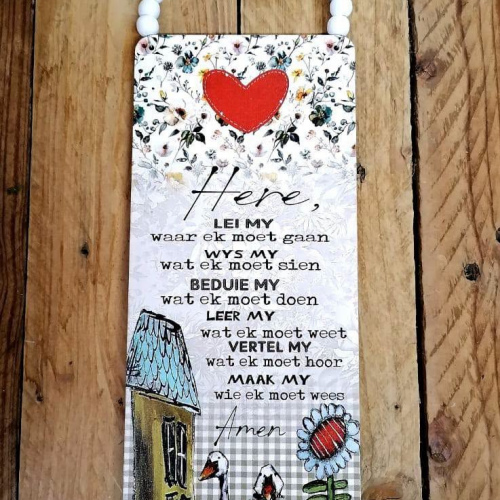 Here,
LEI MY
waar ek moet gaan
WYS MY
wat ek moet sien
BEDUIE MY
wat ek moet doen
LEER MY
wat ek moet weet
VERTEL MY
wat ek moet hoor
MAAK MY
wie ek moet wees
Amen